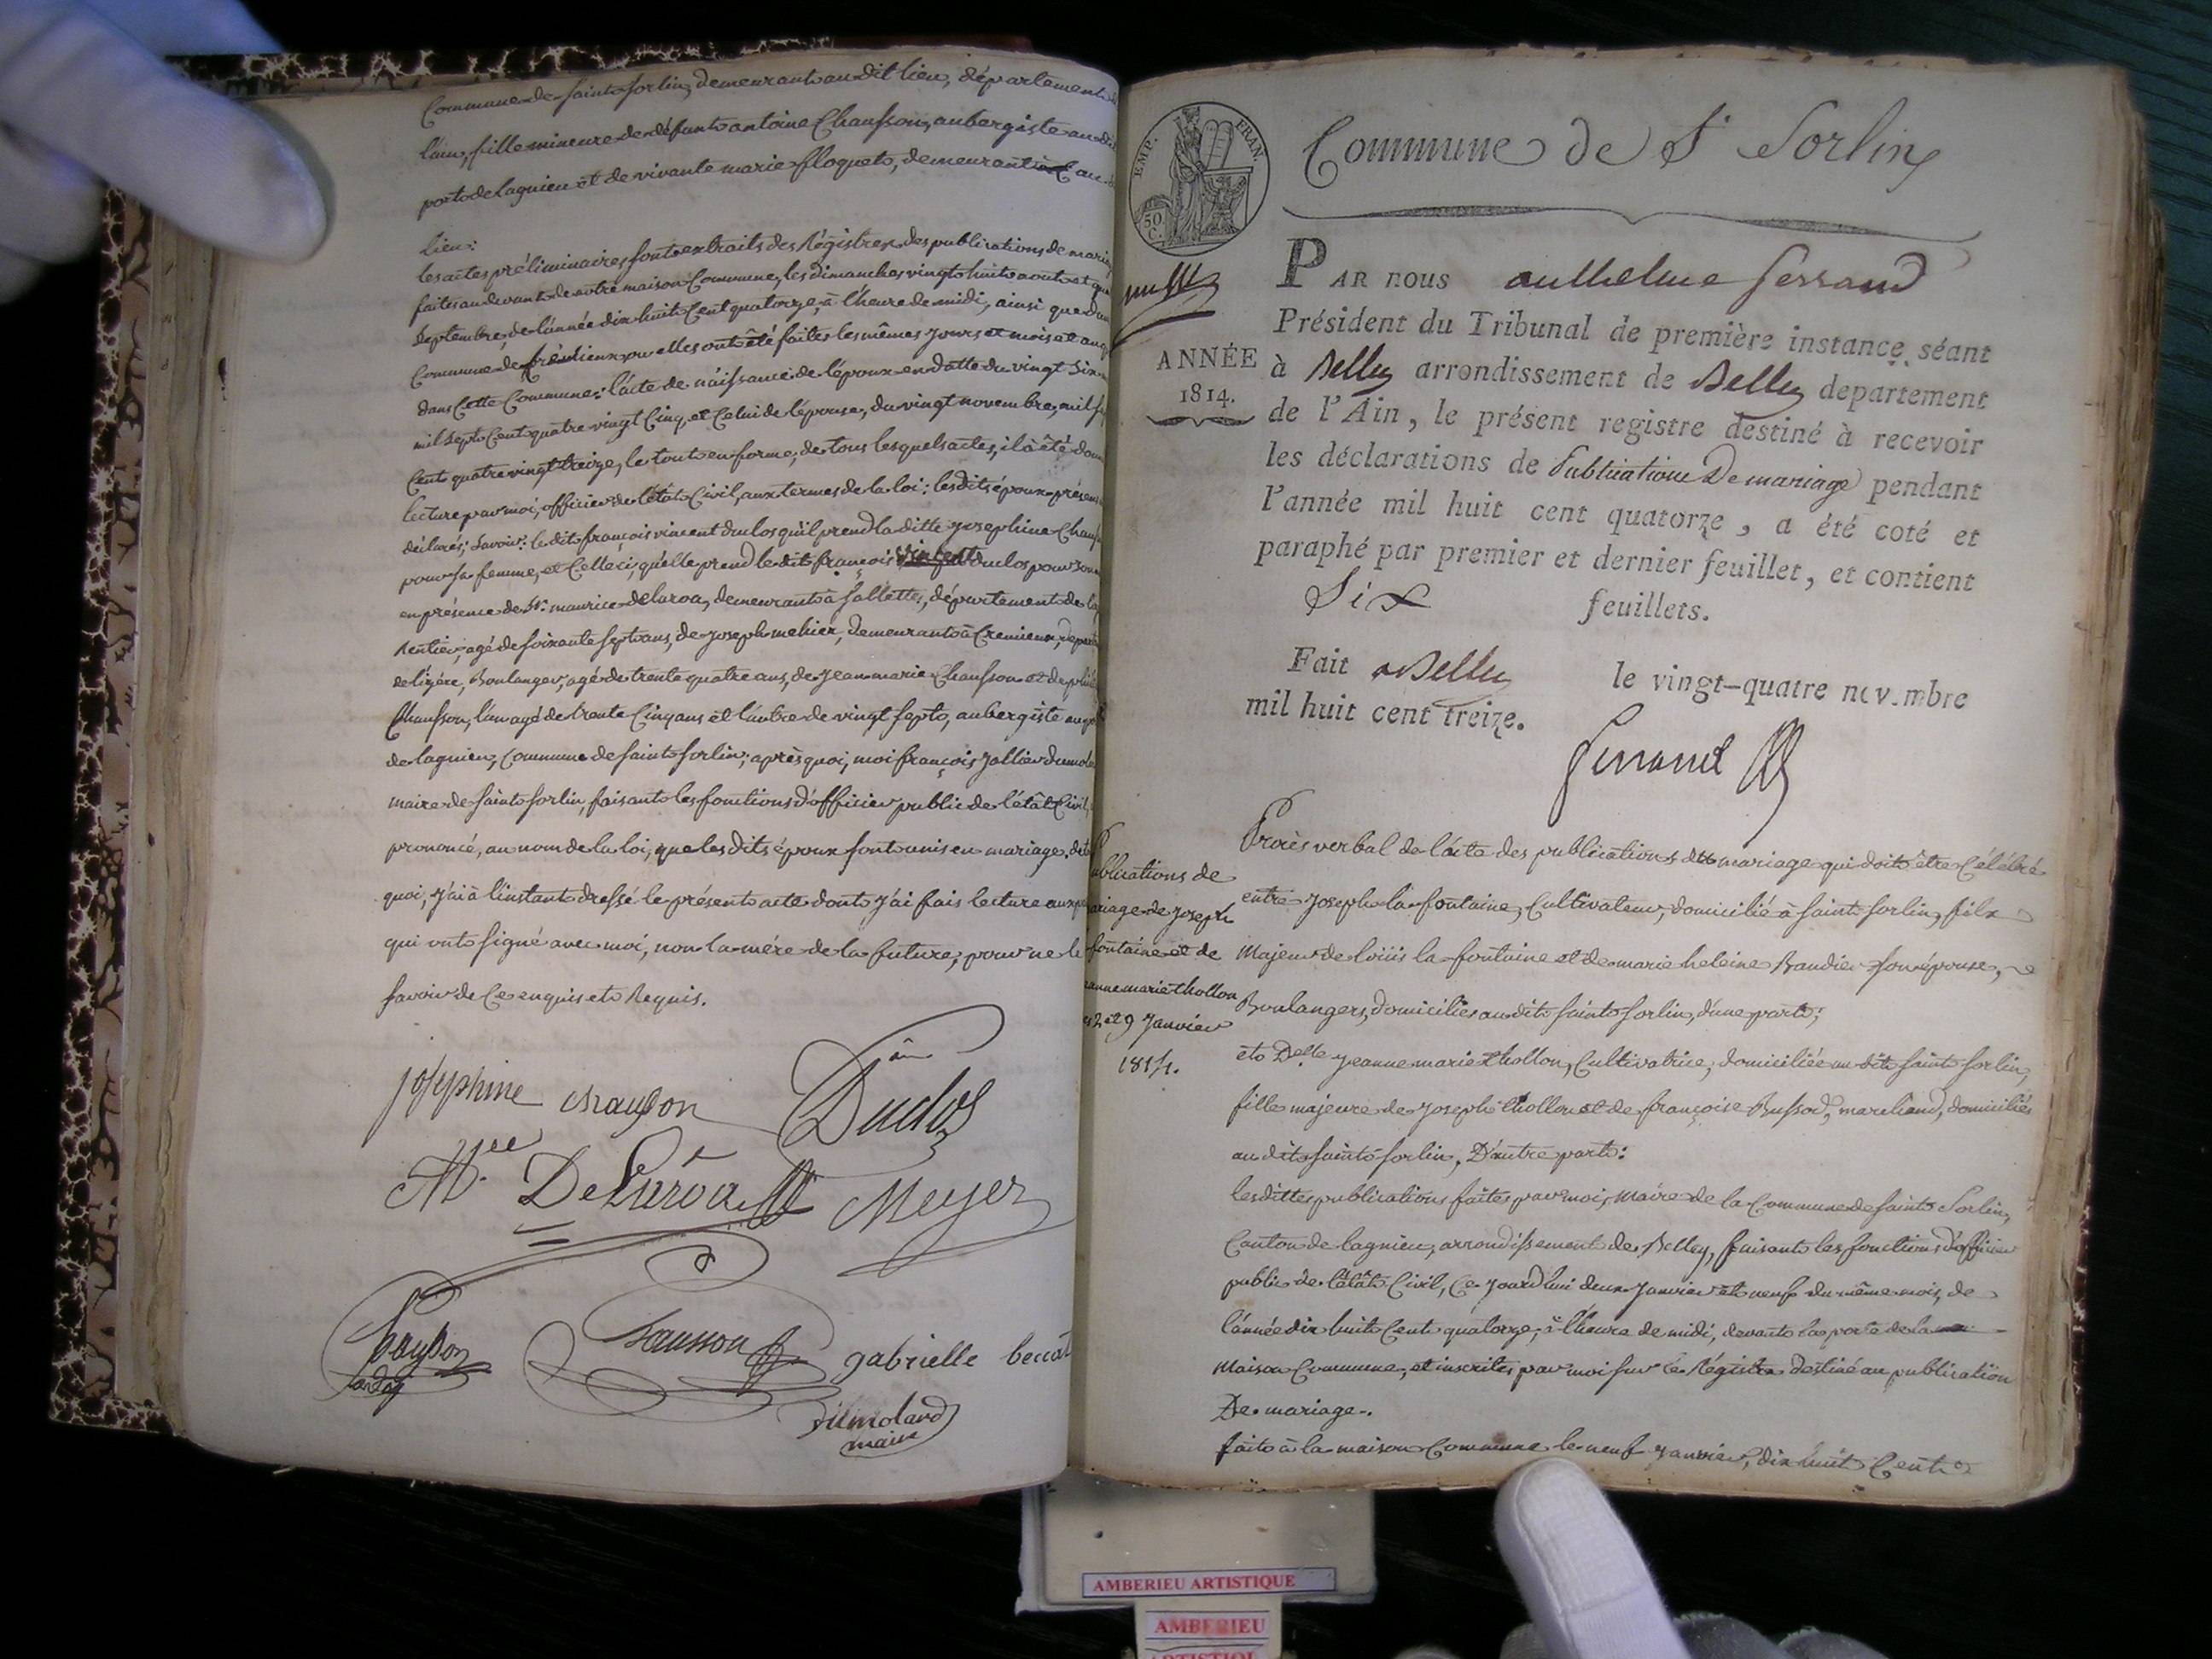 Commune de saint sorlin, demeurant au dit lieu, département
l'ain, fille mineure de défunt antoine Chausson, aubergiste au
port de lagnieu et de vivante marie floquet, demeurant au
lieu:
les actes préliminaires sont extraits des Régistres des publications de
faites au devant de notre maison Commune, les dimanches vingt huit aout et
septembre, de l'année dix huit Cent quatorze, à l'heure de midi, ainsi que
Commune de Crémieux ou elles ont été faites les mêmes jours et mois et
dans Cette Commune: l'acte de náissance de l'époux en datte du vingt six
mil sept Cent quatre vingt Cinq, et Celui de l'épouse, du vingt novembre, mil
Cent quatre vingt treize, le tout en forme; de tous lesquels actes, il à été
lecture par moi, officier de l'état Civil, aux termes de la loi: les dits époux
déclarés; savoir: le dit françois vincent duclos qu'il prend la ditte josephine
pour sa femme, et Celle ci, qu'elle prend le dit françois vincent duclos pour
en présence de Sr. maurice delaroa, demeurant à sallettes, département de
Rentier, agé de soixante sept ans, de joseph mehier, demeurant à Cremieux,
de lizère, Boulanger, agé de trente quatre ans, de jean marie Chausson et de
Chausson, l'un agé de trente Cinq ans et l'autre de vingt sept, aubergiste au
de lagnieu, Commune de saint sorlin; après quoi, moi françois jallier
maire de saint sorlin, faisant les fonctions d'officier public de l'état Civil,
prononcé, au nom de la loi, que les dits époux sont unis en mariage. de
quoi, j'ai à l'instant dressé le présent acte dont j'ai fais lecture aux
qui ont signé avec moi, non la mère de la future, pour ne le
savoir de Ce enquis et Requis.
josephine chauson Duclos
DeLaroa Meyer
gabrielle
Dumolard
maire
EMP. FRAN.
50
C.
Commune de St Sorlin
PAR nous anthelme ferrand
Président du Tribunal de première instance séant
ANNÉE
1814.
à Belley arrondissement de Belley departement
de l'Ain, le présent registre destiné à recevoir
les déclarations de Publications De mariage pendant
l'année mil huit cent quatorze, a été coté et
paraphé par premier et dernier feuillet, et contient
Six feuillets.
Fait à Belley le vingt-quatre novembre
mil huit cent treize.
ferrand
ublications de
ariage de joseph
fontaine et de
anne marie thollon
2 et 9 Janvier
1814.
Procès verbal de l'acte des publications du mariage qui doit être Célébré
entre joseph la fontaine, Cultivateur, domicilié à saint sorlin, fils
Majeur de loüis la fontaine et de marie heleine Baudier son épouse,
Boulangers, domiciliés au dit saint sorlin, d'une part;
et Delle jeanne marie thollon, Cultivatrice, domiciliée au dit saint sorlin,
fille majeure de joseph thollon et de françoise Bussod, marchand, domiciliés
au dit saint sorlin, D'autre part:
les dittes publications faites par moi, Maire de la Commune de saint Sorlin,
Canton de lagnieu, arrondissement de Belley, faisant les fonctions d'officier
public de l'état Civil, Ce jourd'hui deux janvier et neuf du même mois, de
l'année dix huit Cent quatorze, à l'heure de midi, devant la porte de la
Maison Commune, et inscrites par moi sur le Régistre destiné au publication
De mariage.
fait à la maison Commune le neuf janvier, dix huit Cent
AMBERIEU ARTISTIQUE
AMBERIEU
ARTISTIQUE